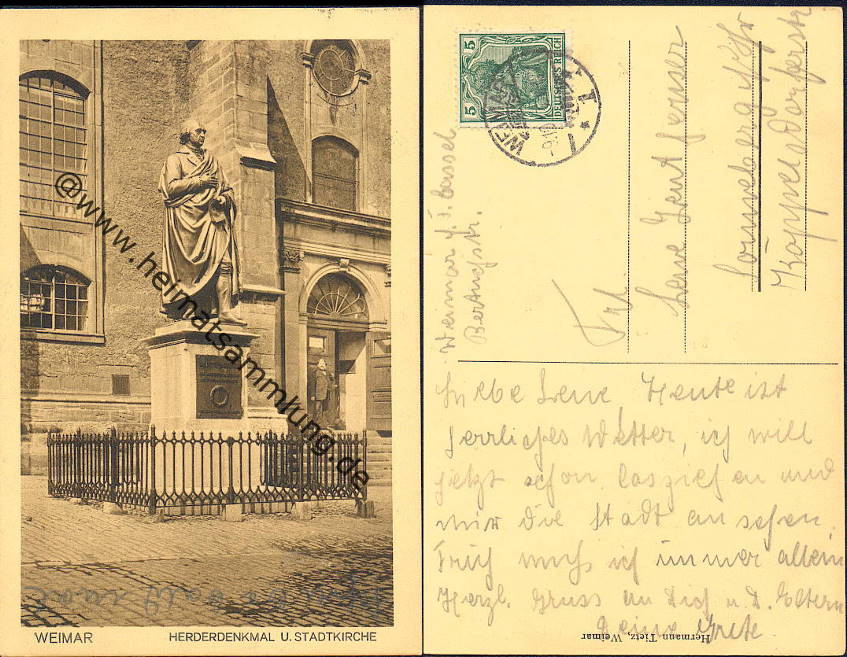 WEIMAR
HERDERDENKMAL U. STADTKIRCHE
@www.heimatsammlung.de
5 DEUTSCHES REICH 5
WEIMAR
Weimar
Frl.
Lene
Sonneberg
Köppelsdorferstr
Liebe Lene, Heute ist
herrliches Wetter, ich will
jetzt schon losziehen und
mir die Stadt ansehen.
Früh muss ich immer allein
Herzl. Gruss an Dich u. D. Eltern
Deine Grete.
Hermann Tietz, Weimar